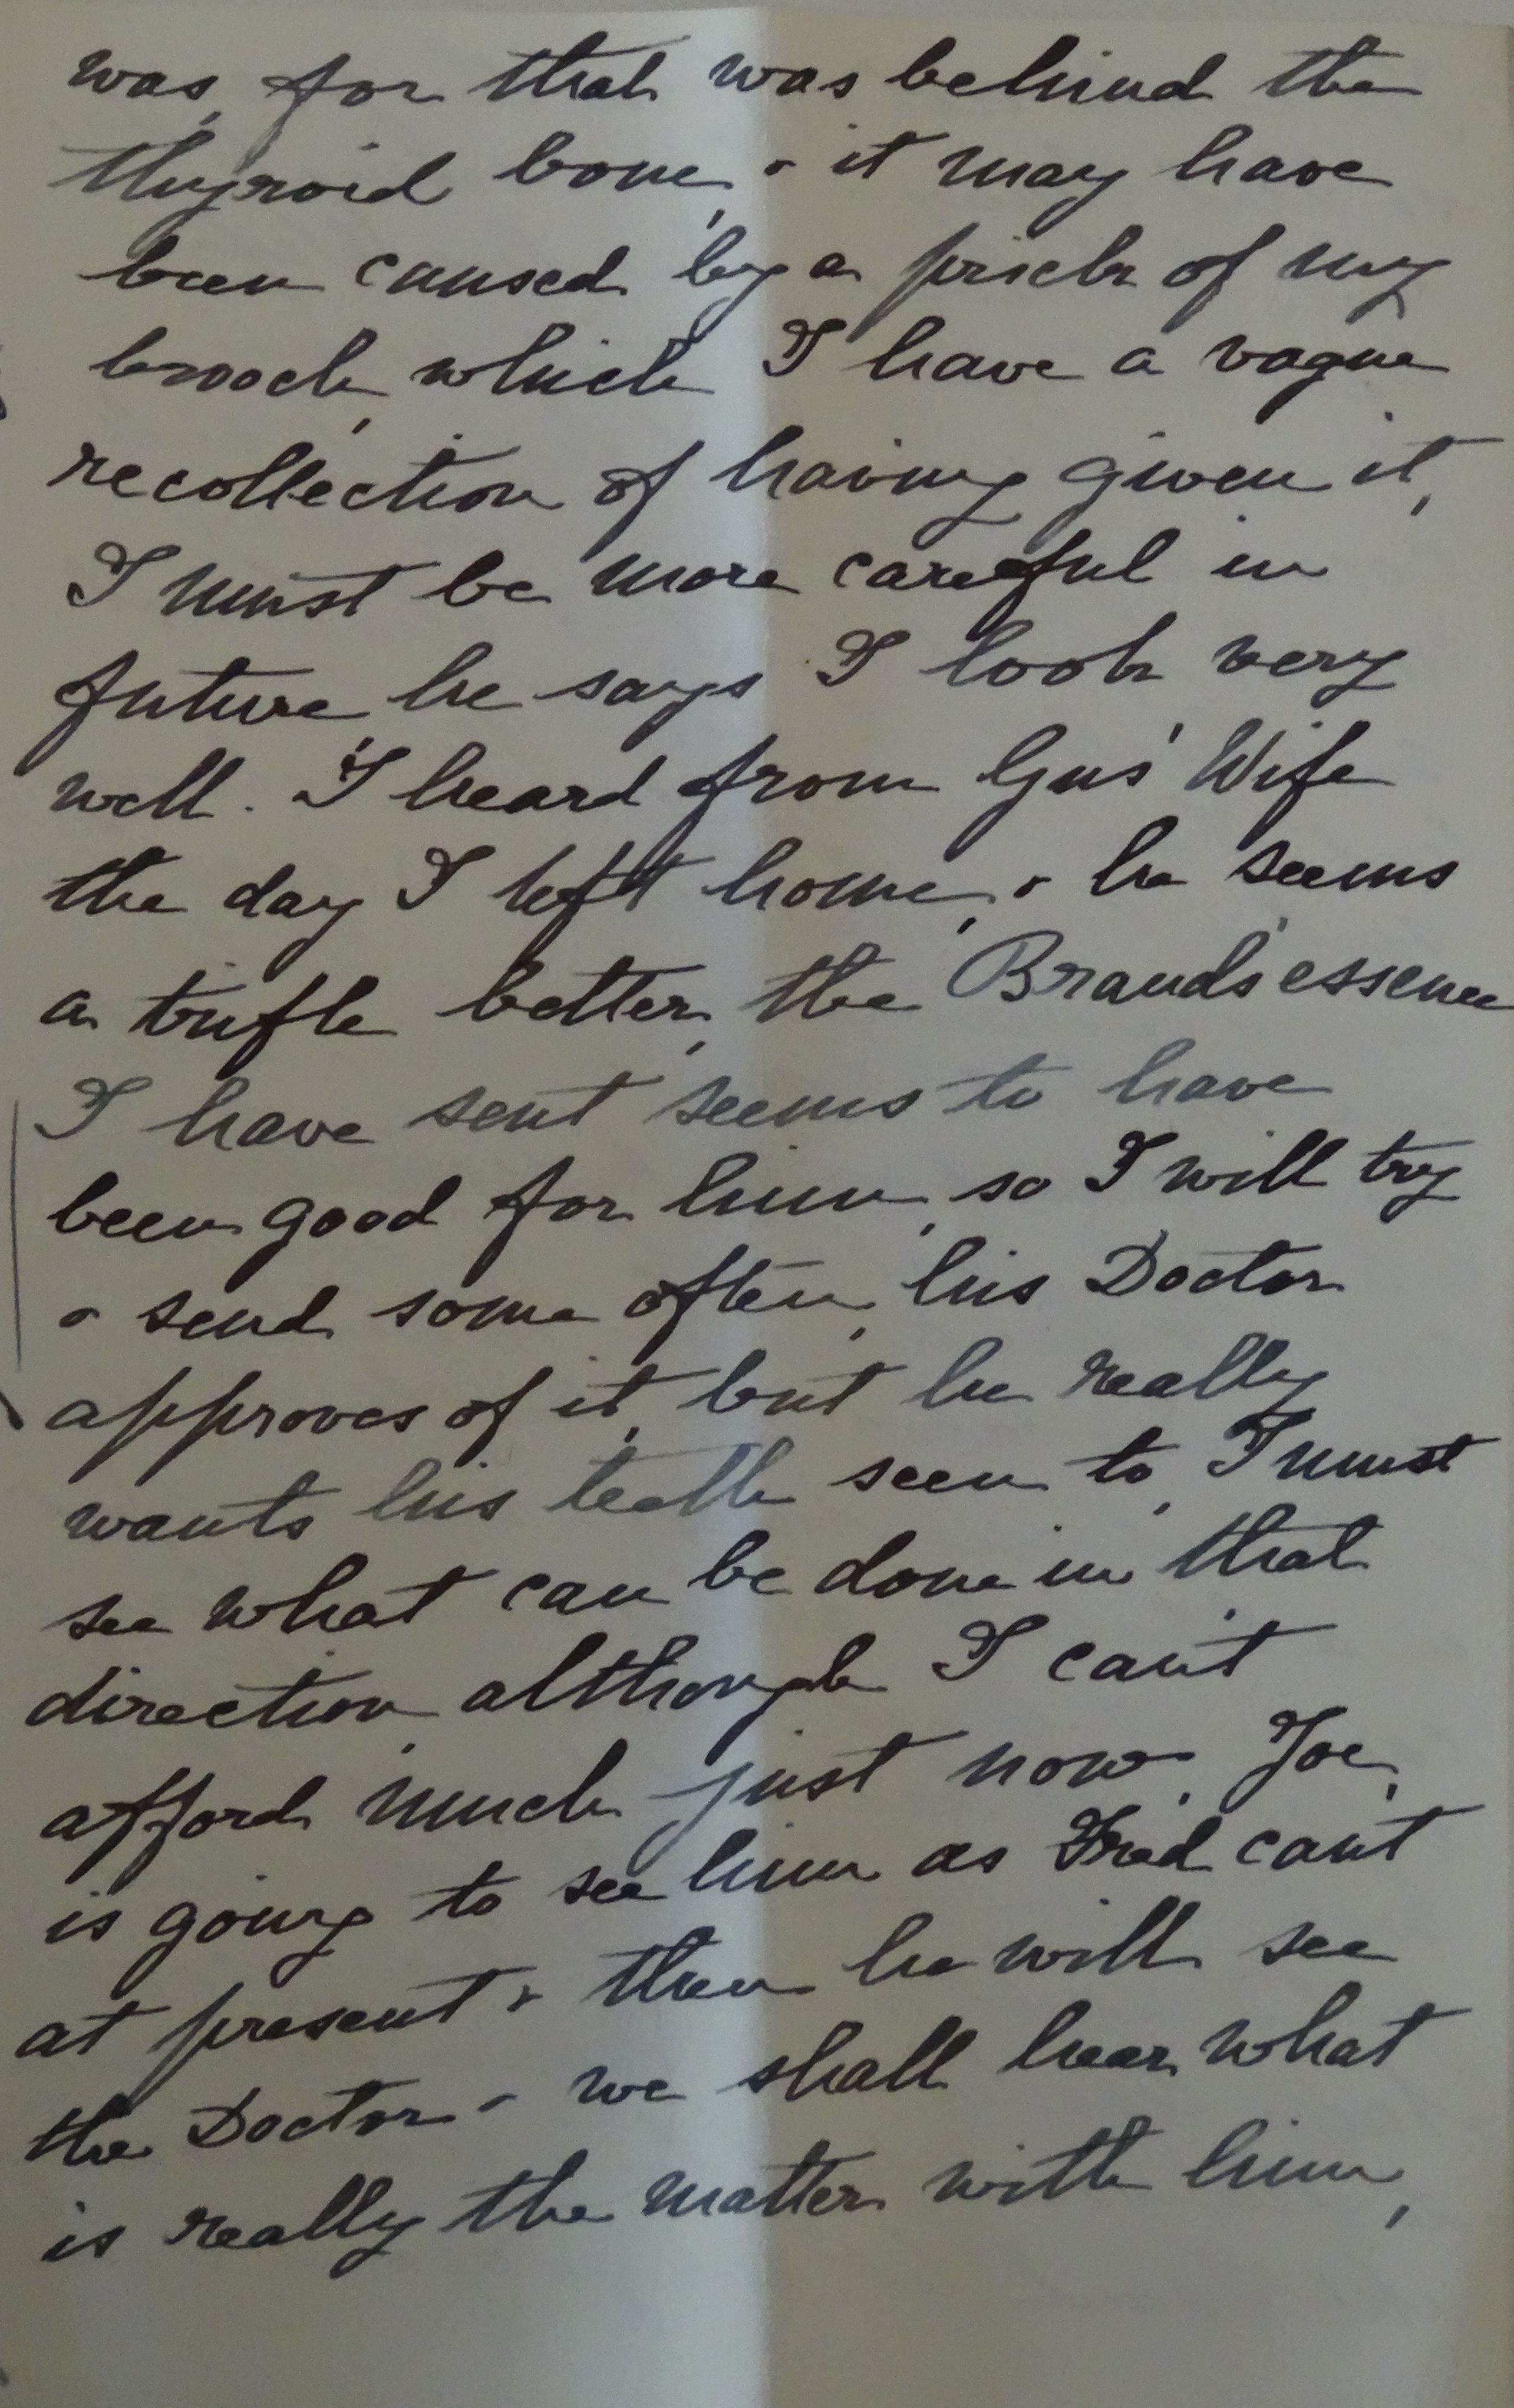 was, for that was behind the
thyroid bone, & it may have
been caused by a prick of my
brooch, which I have a vague
recollection of having given it,
I must be more careful in
future, he says I look very
well. I heard from Gus' Wife
the day I left home, & he seems
a trifle better, the Brand's essence
I have sent seems to have
been good for him, so I will try
& send some often, his Doctor
approves of it, but he really
wants his teeth seen to, I must
see what can be done in that
direction, although I can't
afford much just now, Joe,
is going to see him as Fred cant
at present & then he will see
the Doctor & we shall hear what
is really the matter with him,